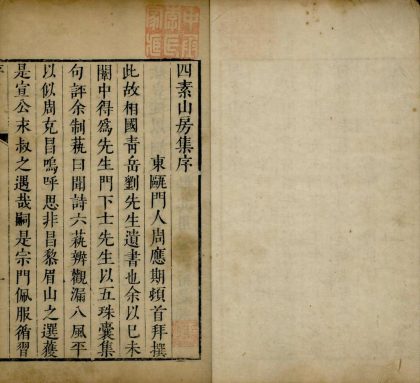 四素山房集序
東甌門人周應期頓首拜撰
此故相國青岳劉先生遺書也余以巳未
闈中得爲先生門下士先生以五珠囊集
句評余制蓺曰聞詩六蓺辨觀漏八風平
以似周克昌嗚呼思非昌黎眉山之選獲
是宣公永叔之遇哉嗣是宗門佩服循習